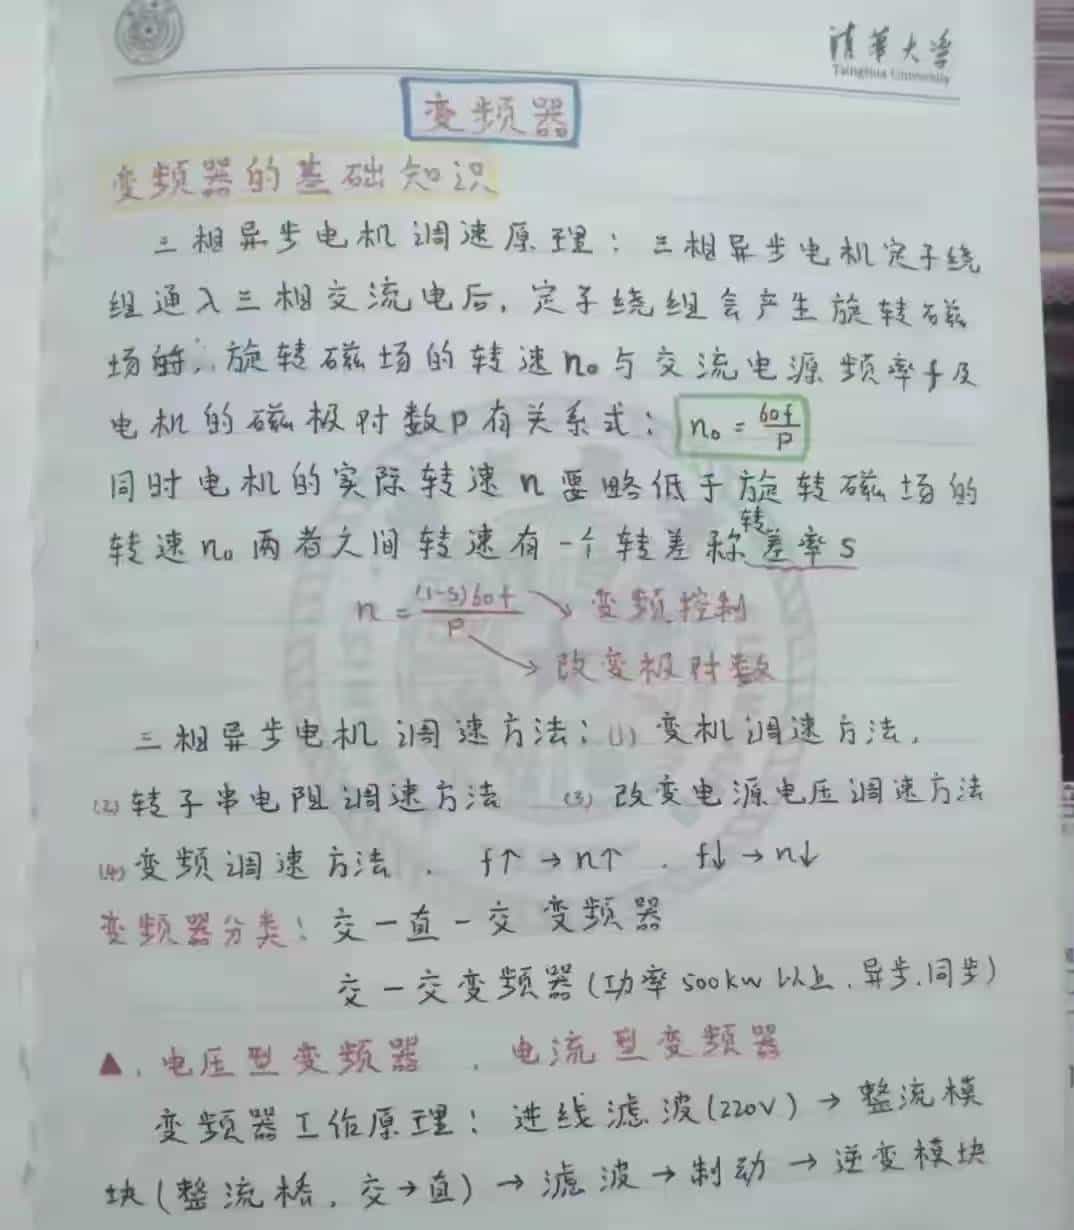 清华大学
Tsinghua University
变频器
变频器的基础知识
三相异步电机调速原理：三相异步电机定子绕
组通入三相交流电后，定子绕组会产生旋转磁
场，旋转磁场的转速n₀与交流电源频率f及
电机的磁极对数P有关系式：n₀ = 60f/P
同时电机的实际转速n要略低于旋转磁场的
转速n₀两者之间转速有一个转差称转差率S
n = (1-S)60f/P → 变频控制
→ 改变极对数
三相异步电机调速方法：(1) 变机调速方法，
(2) 转子串电阻调速方法 (3) 改变电源电压调速方法
(4) 变频调速方法． f↑ → n↑ ．f↓ → n↓
变频器分类：交一直一交 变频器
交一交变频器(功率500kw以上．异步．同步)
▲．电压型变频器 ．电流型变频器
变频器工作原理：进线滤波(220V) → 整流模
块(整流桥，交→直) → 滤波 → 制动 → 逆变模块